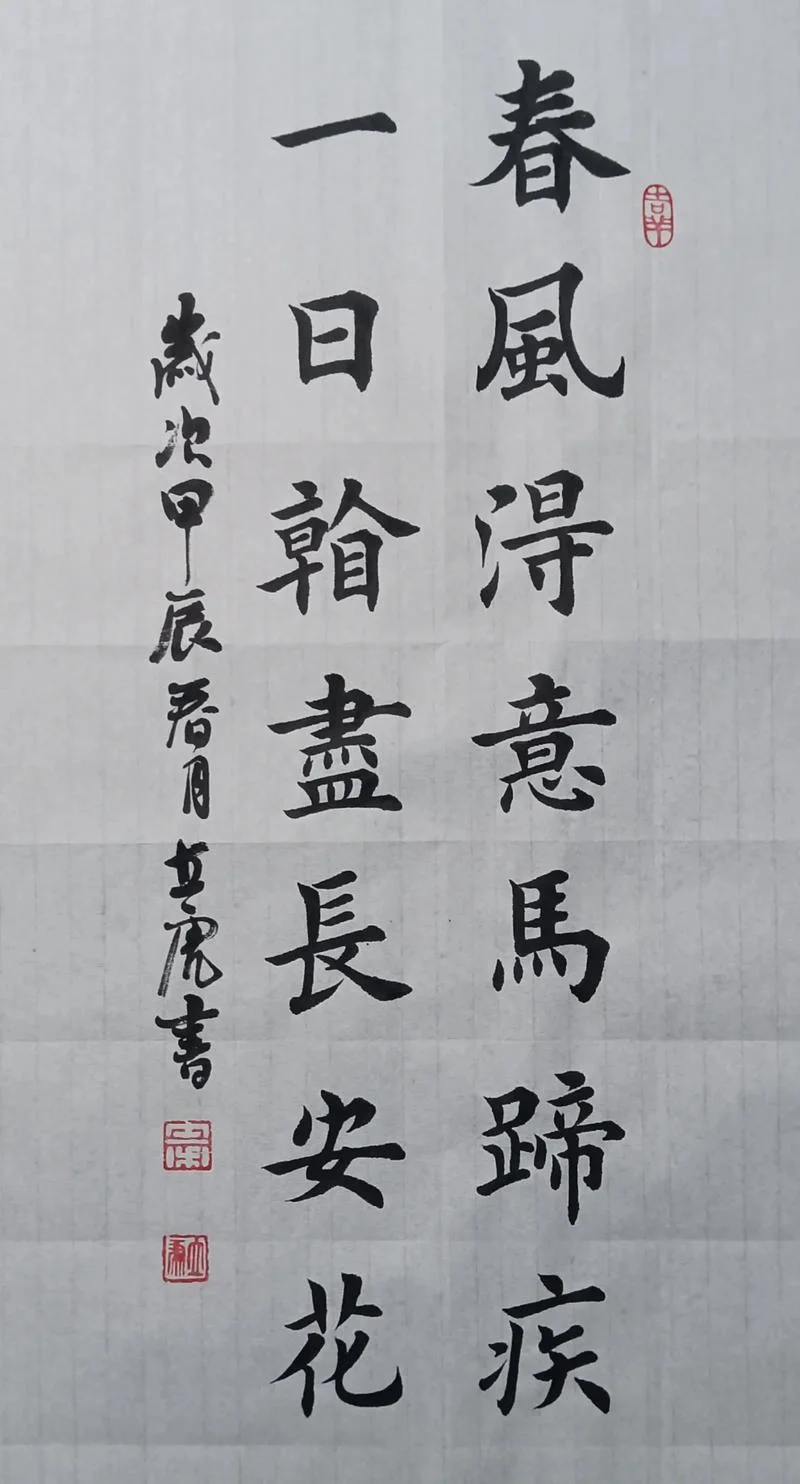 春風淂意馬蹄疾
一日看盡長安花
歲次甲辰春月立虎書